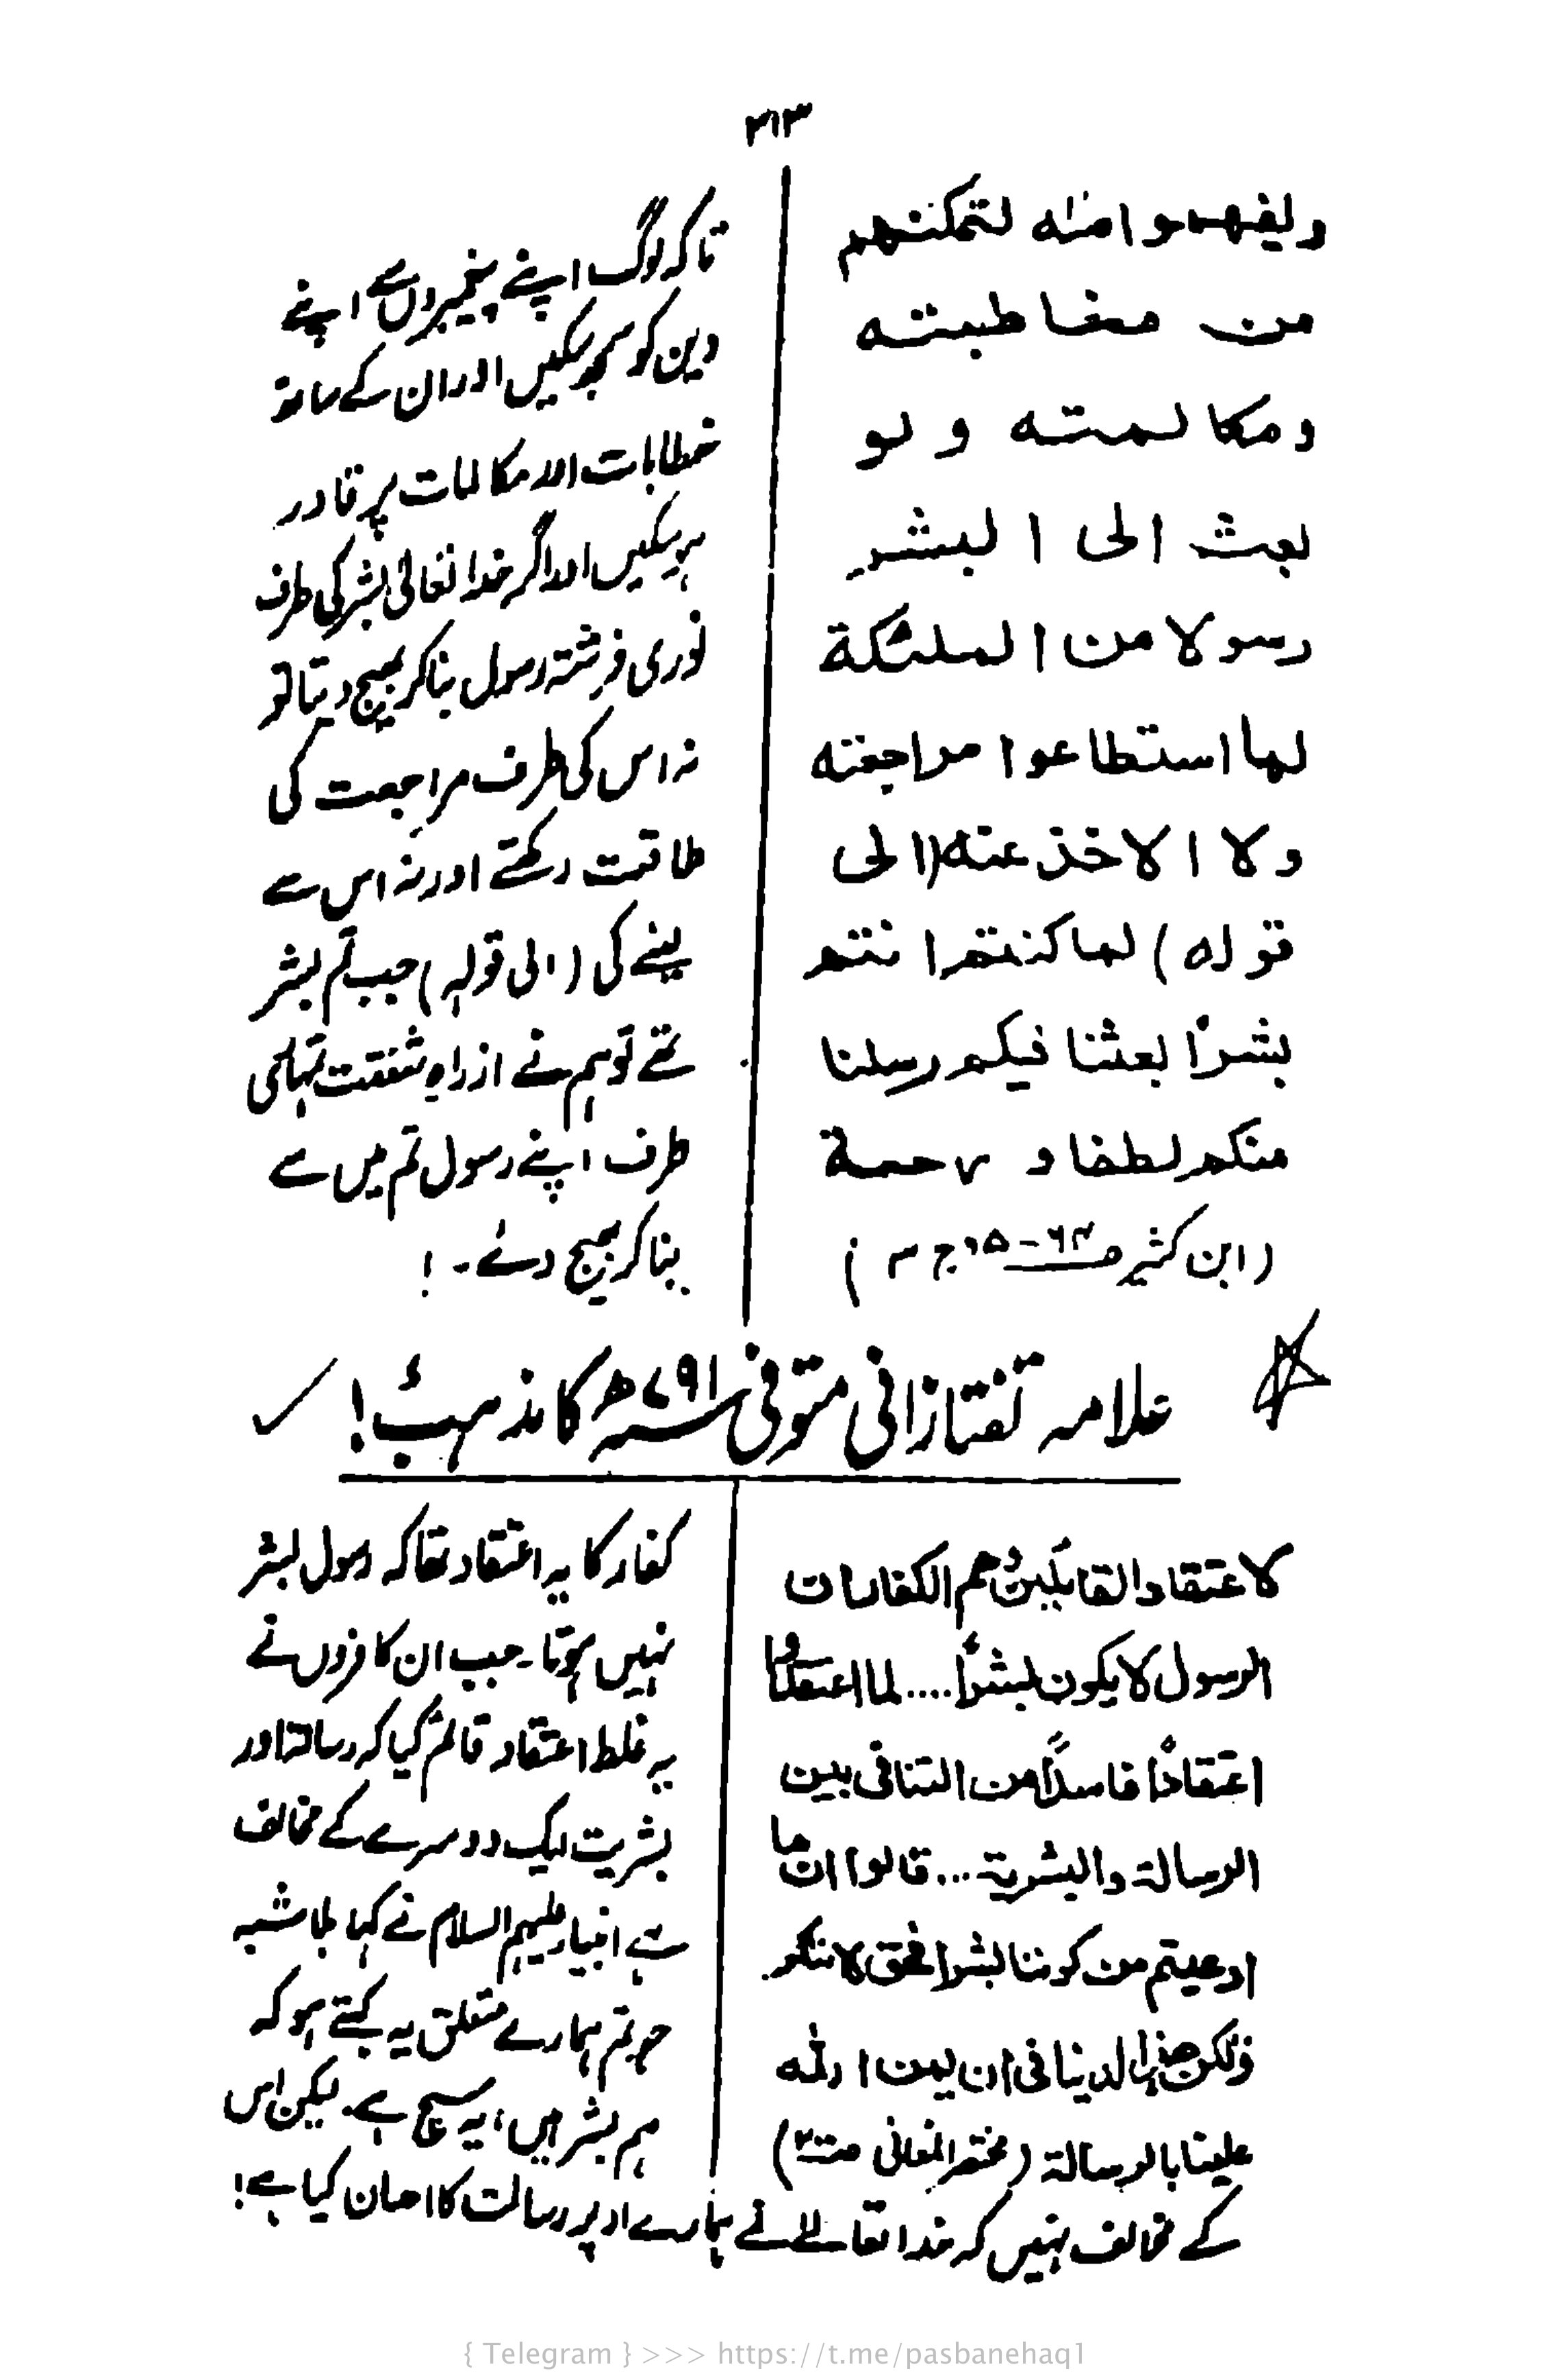 ۲۱۳
ولیفهموا منه لتمکنهم
من مخاطبته
ومکالمته ولو
بعث الی البشر
رسولا من الملئکة
لما استطاعوا مراجعته
ولا الاخذ عنه (الی
قوله) لما کنتم انتم
بشرًا بعثنا فیکم رسلنا
منکم لطفا و رحمة
(ابن کثیر ص۶۴-۶۵ ج ۳)
تاکہ لوگ اپنے پیغمبروں سے اپنے
دین کو سمجھ سکیں اور ان کے ساتھ
خطابات اور مکالمات پر قادر
ہو سکیں اور اگر خدا تعالیٰ بشر کی طرف
نوری فرشتہ رسول بنا کر بھیج دیتا تو
نہ اس کی طرف مراجعت کی
طاقت رکھتے اور نہ اس سے
لینے کی (الی قولہ) جب تم بشر
تھے تو ہم نے ازراہِ شفقت تمہاری
طرف اپنے رسول تم میں سے
بنا کر بھیج دئے۔!
علامہ تفتازانی متوفی ۷۹۱ھ کا مذہب!
لاعتقاد القائلین وهم الکفار ان
الرسول لا یکون بشرًا.... لما اعتقدوا
اعتقادًا فاسدًا من التنافی بین
الرسالة والبشریة... قالوا ان ما
ادعیتم من کوننا بشرا فحق لا ننکر
ولکن هذا لا ینافی ان یمن الله
علینا بالرسالة (مختصر المعانی
کفار کا یہ اعتقاد تھا کہ رسول بشر
نہیں ہوتا۔ جب ان کافروں نے
یہ غلط اعتقاد قائم کیا کہ رسالت اور
بشریت ایک دوسرے کے مخالف
ہے انبیاء علیہم السلام نے کہا بلا شبہ
جو تم ہمارے متعلق یہ کہتے ہو کہ
ہم بشر ہیں، یہ سچ ہے۔ لیکن اس
کے مخالف نہیں کہ خدا تعالےٰ نے ہمارے اوپر رسالت کا احسان کیا ہے!
{ Telegram } >>> https://t.me/pasbanehaq1